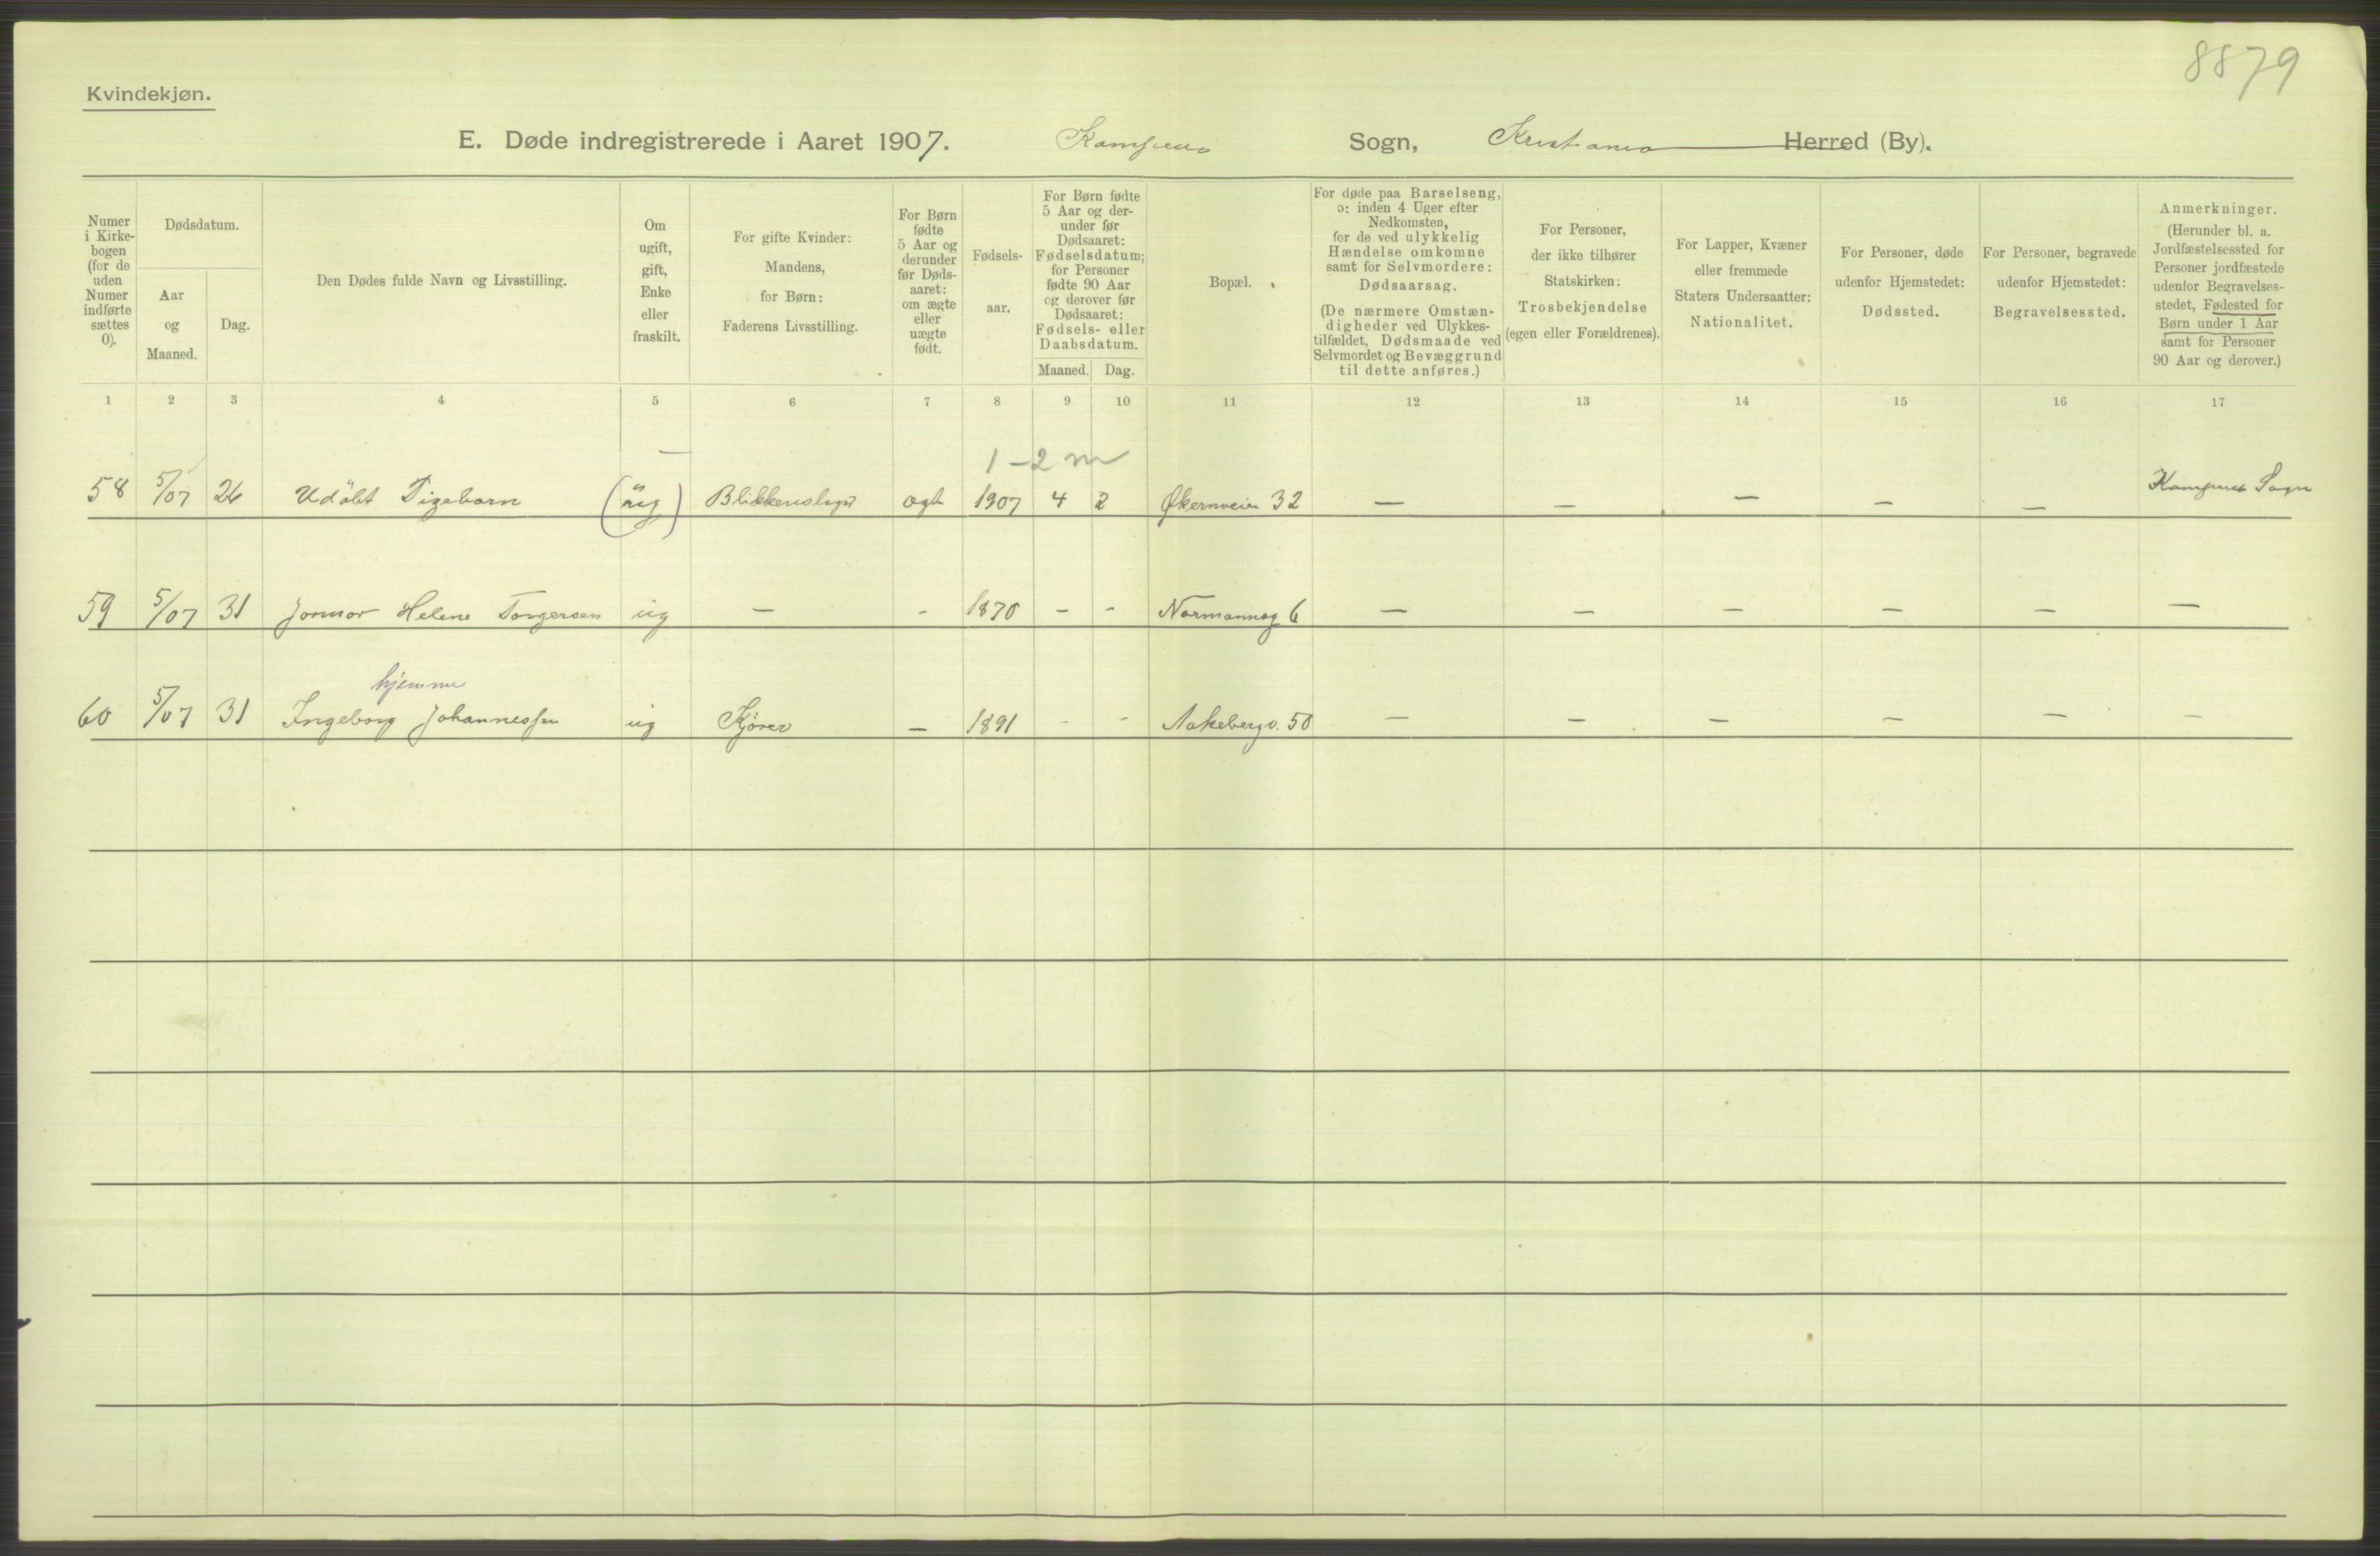 8879
Kvindekjøn.
E. Døde indregistrerede i Aaret 1907. Kampens Sogn, Kristiania Herred (By).
Numer i Kirke-bogen (for de uden Numer indførte sættes 0).
Dødsdatum.
Aar og Maaned.
Dag.
Den Dødes fulde Navn og Livsstilling.
Om ugift, gift, Enke eller fraskilt.
For gifte Kvinder: Mandens, for Børn: Faderens Livsstilling.
For Børn fødte 5 Aar og derunder før Døds-aaret: om ægte eller uægte født.
Fødsels-aar.
For Børn fødte 5 Aar og der-under før Dødsaaret: Fødselsdatum; for Personer fødte 90 Aar og derover før Dødsaaret: Fødsels- eller Daabsdatum.
Maaned. Dag.
Bopæl.
For døde paa Barselseng, ɔ: inden 4 Uger efter Nedkomsten, for de ved ulykkelig Hændelse omkomne samt for Selvmordere: Dødsaarsag.
(De nærmere Omstæn-digheder ved Ulykkes-tilfældet, Dødsmaade ved Selvmordet og Bevæggrund til dette anføres.)
For Personer, der ikke tilhører Statskirken: Trosbekjendelse (egen eller Forældrenes).
For Lapper, Kvæner eller fremmede Staters Undersaatter: Nationalitet.
For Personer, døde udenfor Hjemstedet: Dødssted.
For Personer, begravede udenfor Hjemstedet: Begravelsessted.
Anmerkninger. (Herunder bl. a. Jordfæstelsessted for Personer jordfæstede udenfor Begravelses-stedet, Fødested for Børn under 1 Aar samt for Personer 90 Aar og derover.)
1 2 3 4 5 6 7 8 9 10 11 12 13 14 15 16 17
— 1-2 m
58 5/07 26 Udöbt Pigebarn (ug) Blikkenslager ogt 1907 4 2 Økernveien 32 — — — — — Kampens Sogn
59 5/07 31 Jonnor Helene Torgersen ug — - 1870 - - Normannsg 6 — — — — — —
hjemme
60 5/07 31 Ingeborg Johannessen ug Kjører — 1891 - - Aakebergv. 50 — — — — — —